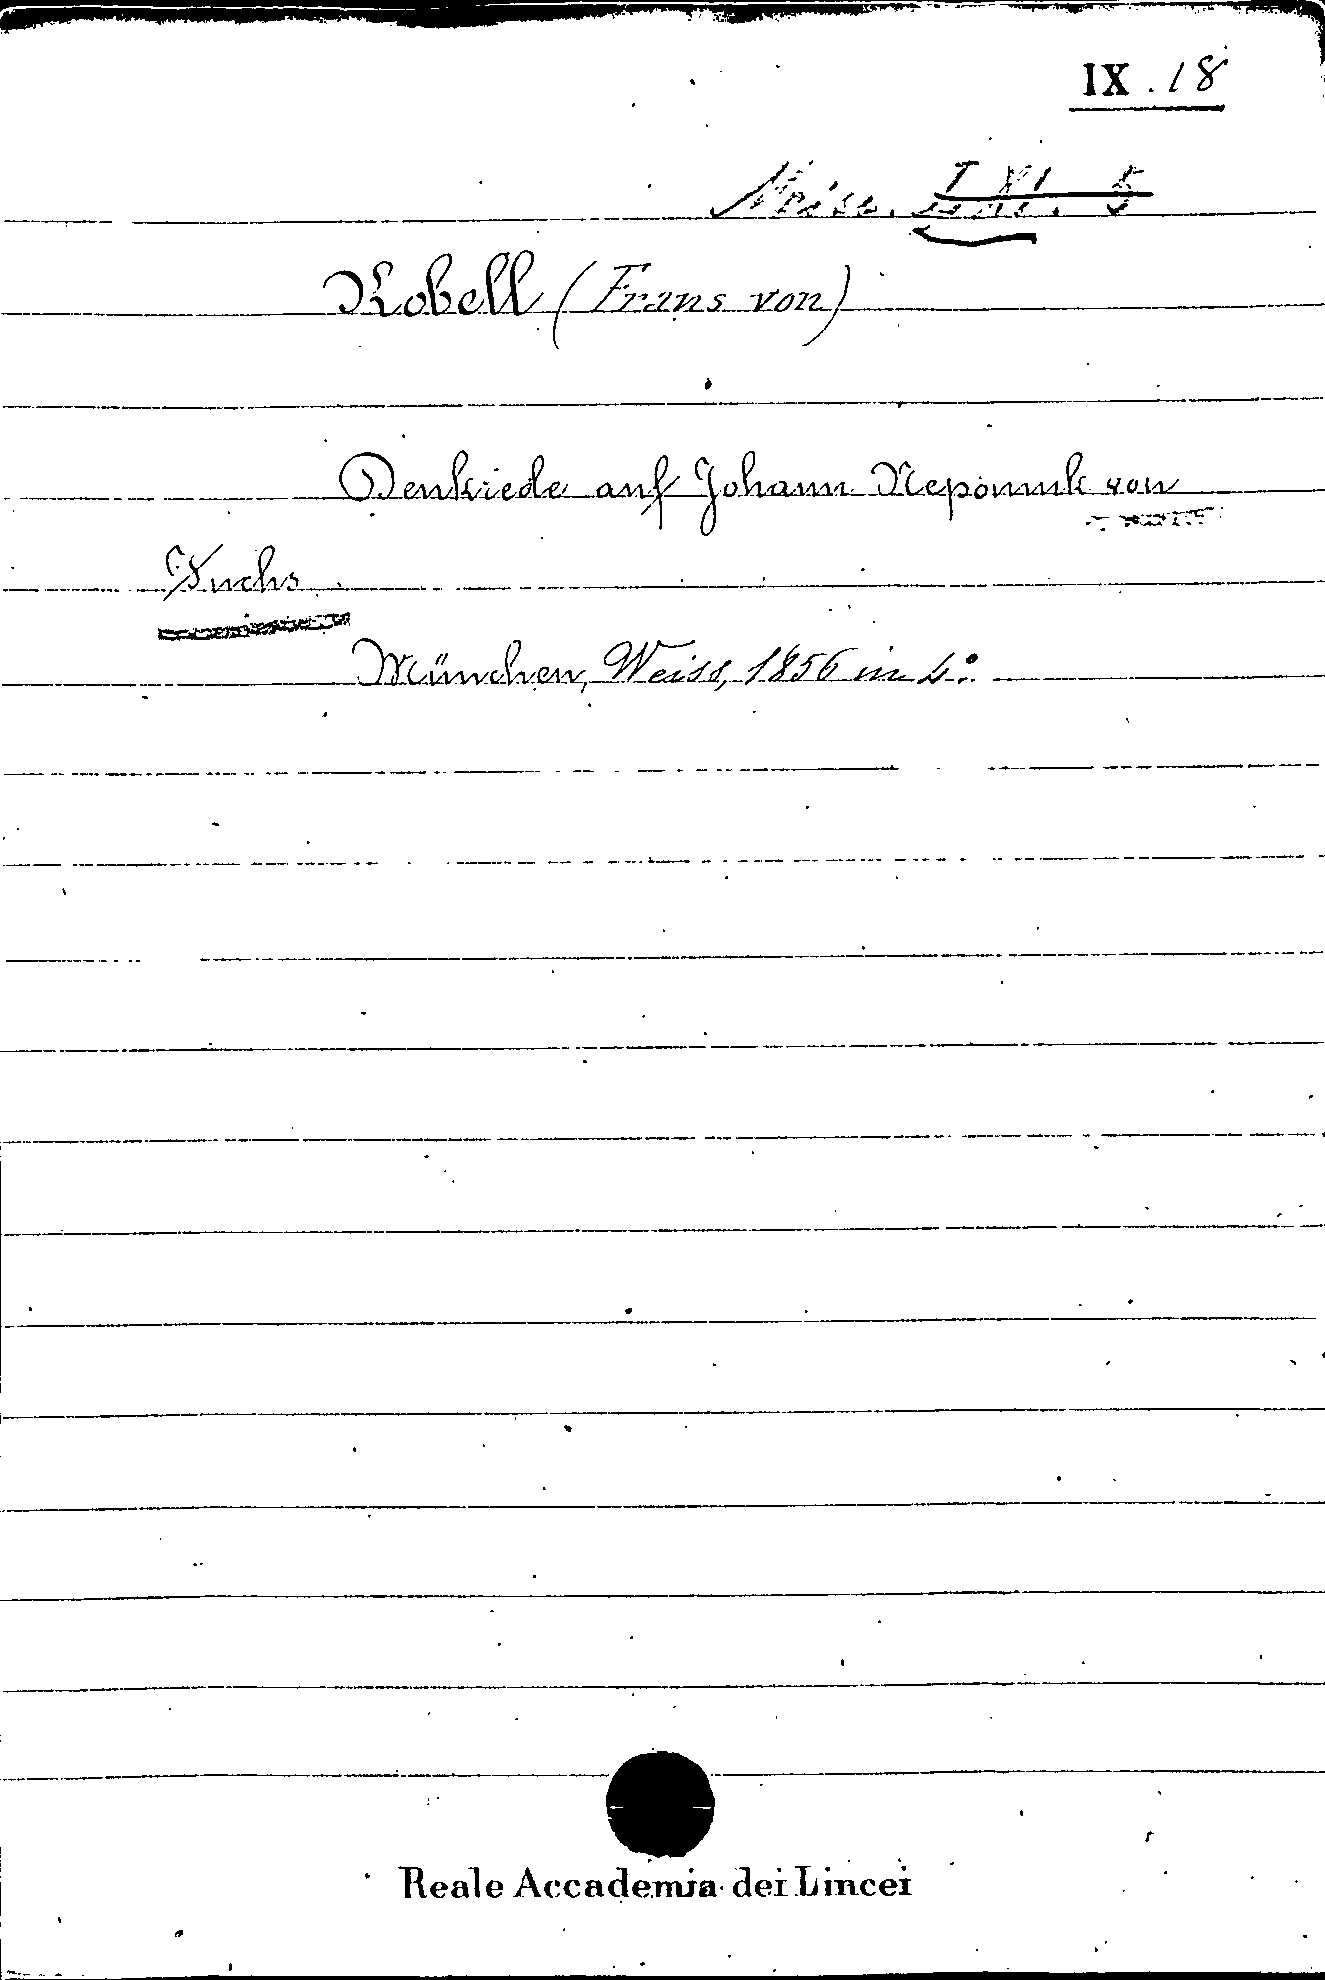 IX . 18
Misc. I XI. 5
Kobell (Frans von)
Denkrede auf Johann Nepomuk von
Fuchs
München, Weiss, 1856 in 4°.
Reale Accademia dei Lincei